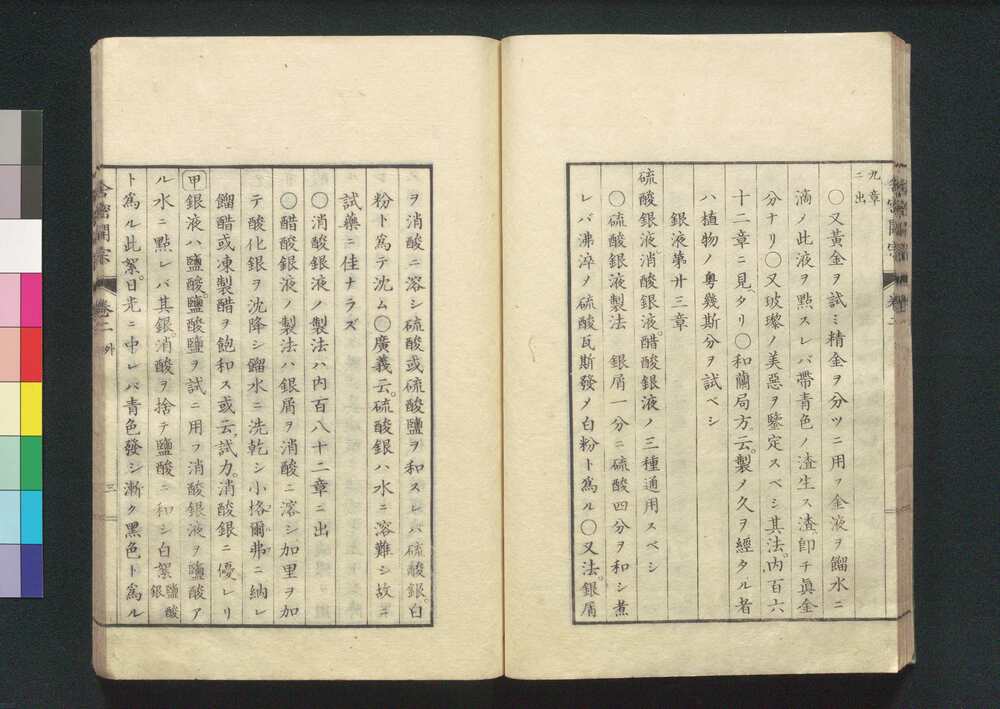 九章
ニ出
〇又黃金ヲ試ミ精金ヲ分ツニ用フ金液ヲ餾水ニ
滴ノ此液ヲ點スレバ帶青色ノ渣生ス渣卽チ眞金
分ナリ〇又玻璨ノ美惡ヲ鑒定スベシ其法内百六
十二章ニ見ヘタリ〇和蘭局方云製ノ久ヲ經タル者
ハ植物ノ粤幾斯分ヲ試ベシ
銀液第廿三章
硫酸銀液消酸銀液醋酸銀液ノ三種通用スベシ
〇硫酸銀液製法 銀屑一分ニ硫酸四分ヲ和シ煮
レバ沸淬ノ硫酸瓦斯發メ白粉ト爲ル〇又法銀屑
ヲ消酸ニ溶シ硫酸或硫酸鹽ヲ和スレバ硫酸銀白
粉ト爲テ沈ム〇廣義云硫酸銀ハ水ニ溶難シ故ニ
試藥ニ佳ナラズ
〇消酸銀液ノ製法ハ内百八十二章ニ出
〇醋酸銀液ノ製法ハ銀屑ヲ消酸ニ溶シ加里ヲ加
テ酸化銀ヲ沈降シ餾水ニ洗乾シ小格爾弗ニ納レ
餾醋或凍製醋ヲ飽和ス或云試力消酸銀ニ優レリ
甲銀液ハ鹽酸鹽酸鹽ヲ試ニ用フ消酸銀液ヲ鹽酸ア
ル水ニ點レバ其銀消酸ヲ捨テ鹽酸ニ和シ白絮鹽酸銀
ト爲ル此絮日光ニ中レバ青色發シ漸ク黑色ト爲ル
舎密開宗 卷二 外 三